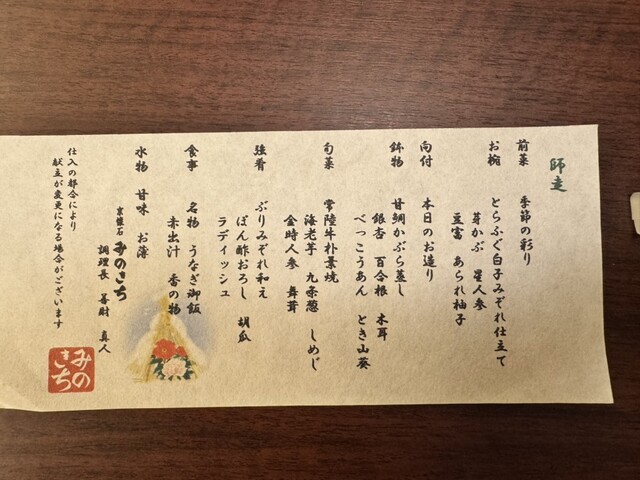 師走
前菜 季節の彩り
お椀 とらふぐ白子みぞれ仕立て
芽かぶ 星人参
豆富 あられ柚子
向付 本日のお造り
鉢物 甘鯛かぶら蒸し
銀杏 百合根 木耳
べっこうあん とき山葵
旬菜 常陸牛朴葉焼
海老芋 九条葱 しめじ
金時人参 舞茸
強肴 ぶりみぞれ和え
ぽん酢おろし 胡瓜
ラディッシュ
食事 名物 うなぎ御飯
赤出汁 香の物
水物 甘味 お薄
京懐石 みのきち
調理長 善財 真人
仕入の都合により
献立が変更になる場合がございます
みの
きち